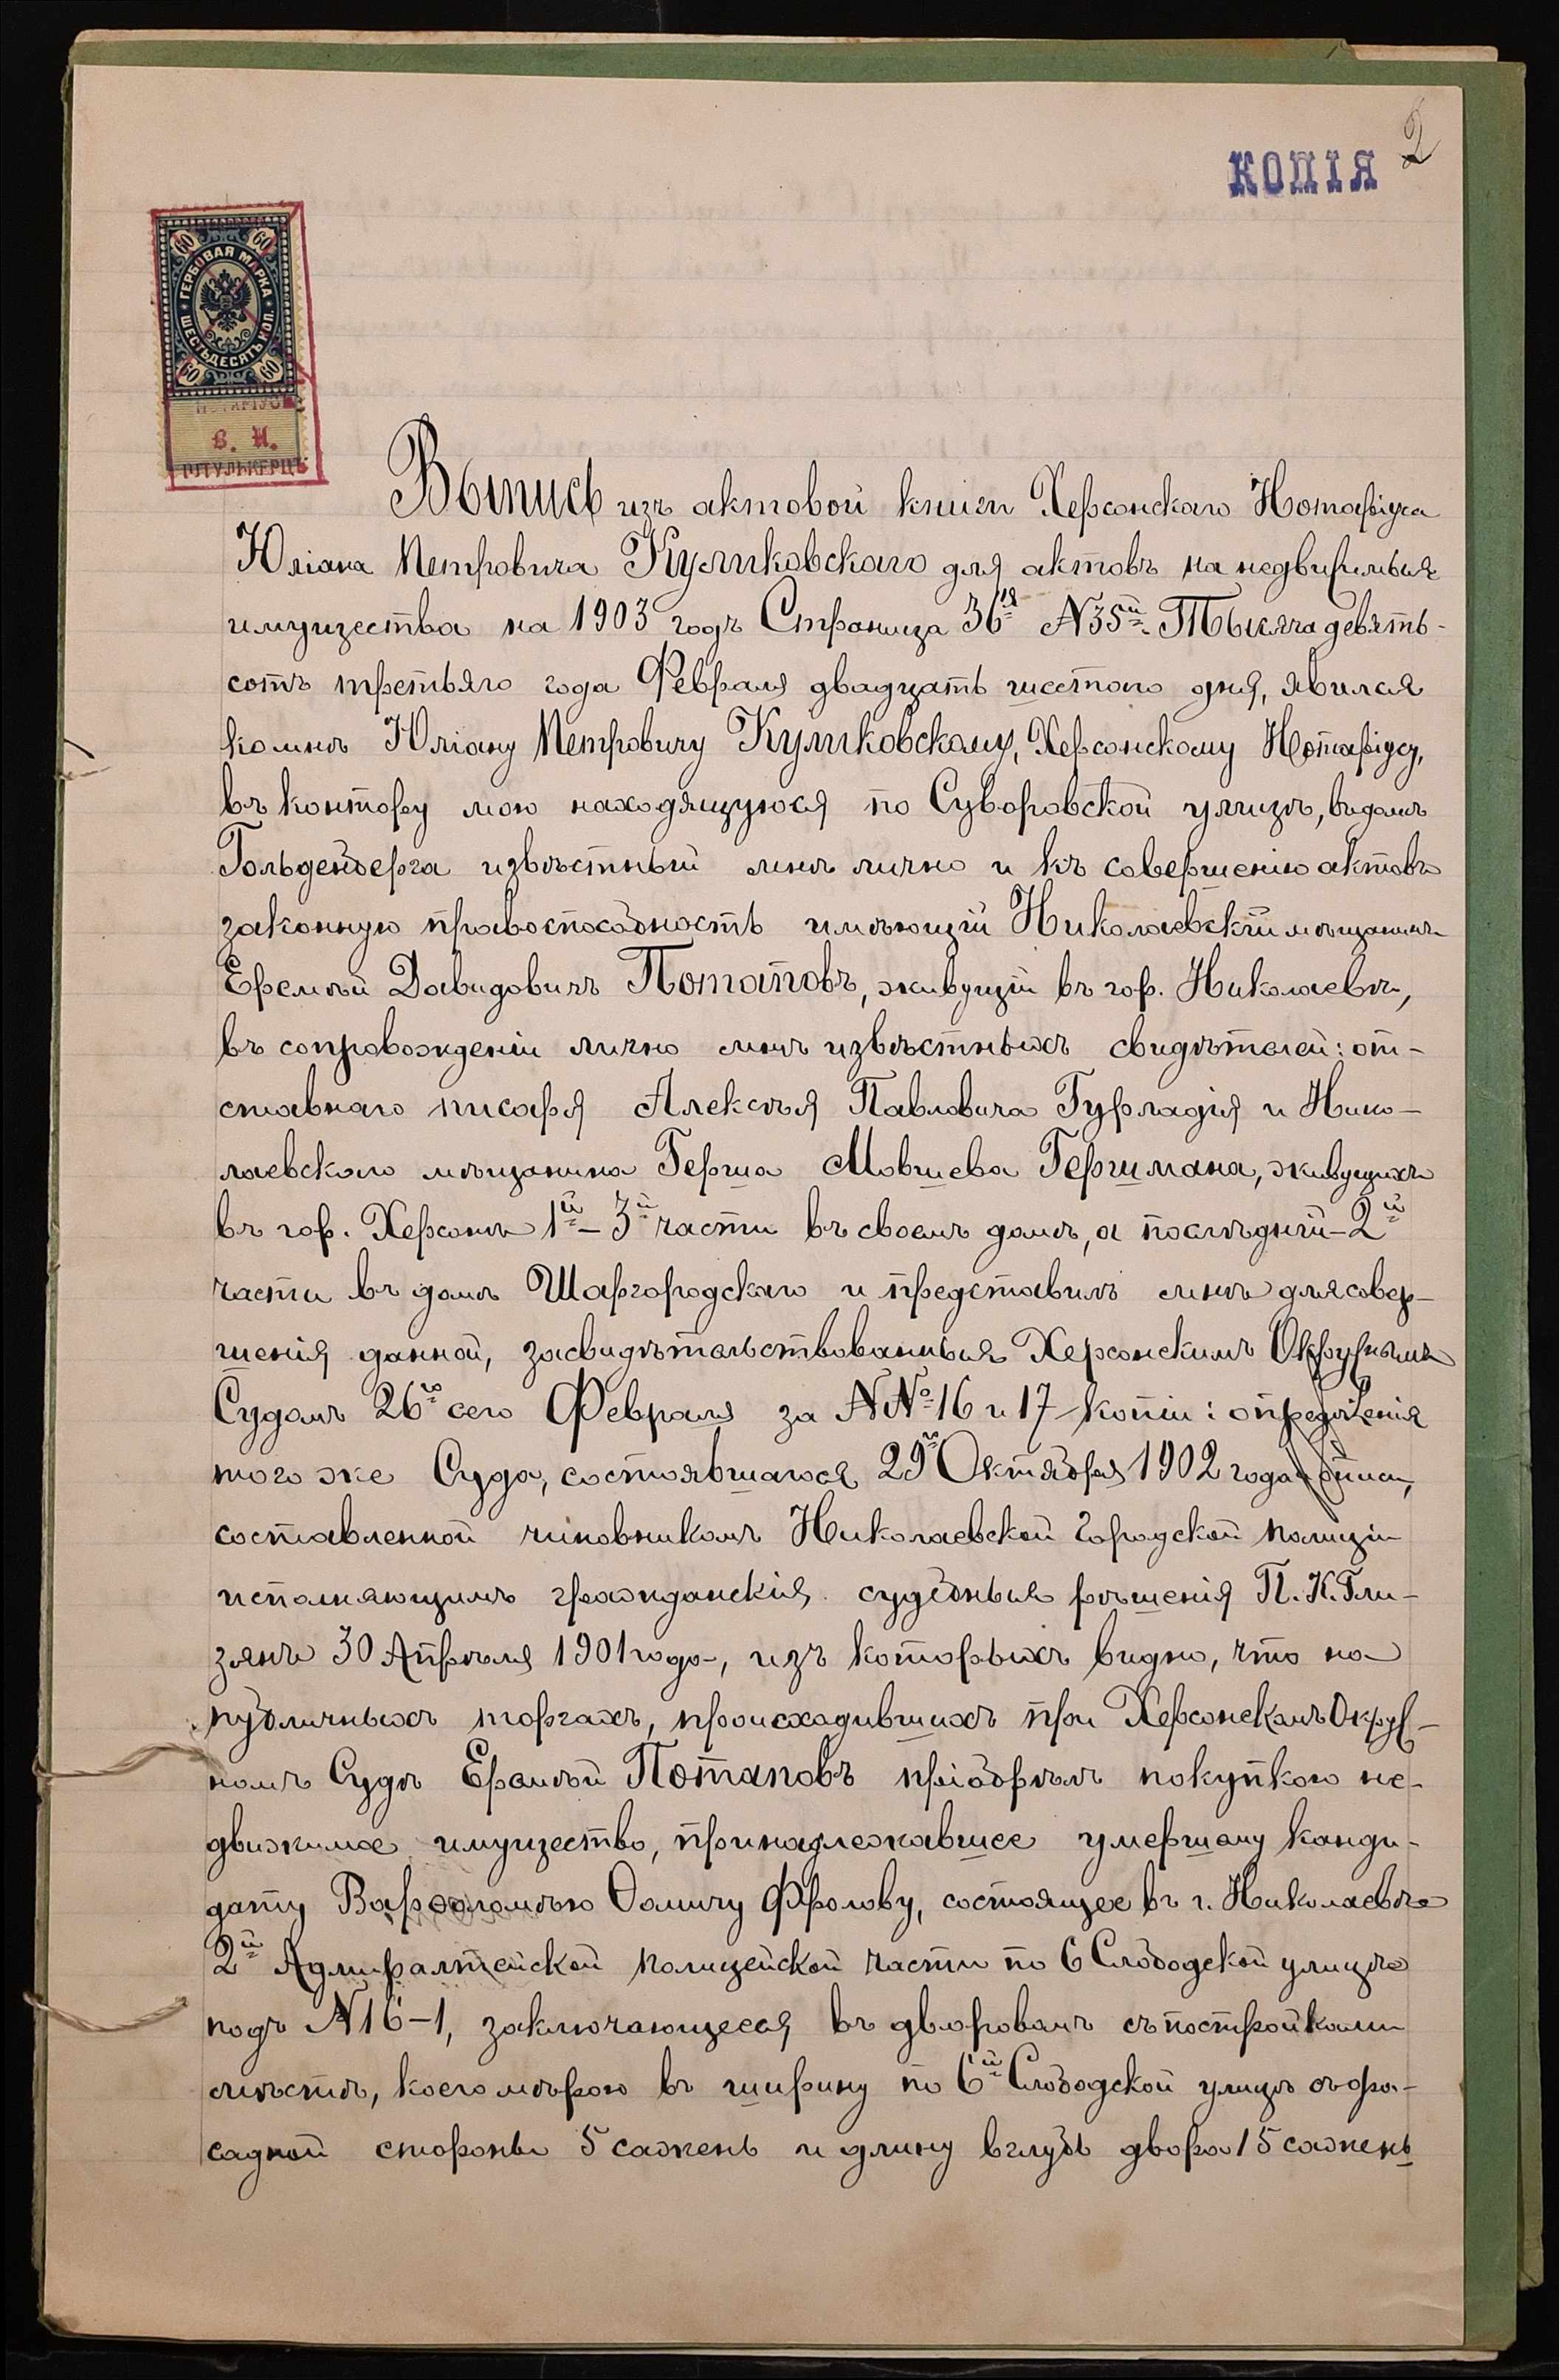 КОПІЯ 2
60 60
ГЕРБОВАЯ МАРКА
ШЕСТЬДЕСЯТЪ КОП.
60 60
НОТАРІУСЪ
В. И.
ШТУЛЬКЕРЦЪ
Выпись изъ актовой книги Херсонскаго Нотаріуса
Юліана Петровича Куликовскаго для актовъ на недвижимыя
имущества на 1903 годъ Страница 36ая N 35й. Тысяча девять-
сотъ третьяго года Февраля двадцать шестого дня, явился
ко мнѣ Юліану Петровичу Куликовскому, Херсонскому Нотаріусу,
въ контору мою находящуюся по Суворовской улицѣ, въ домѣ
Гольденберга извѣстный мнѣ лично и къ совершенію актовъ
законную правоспособность имѣющій Николаевскій мѣщанинъ
Еремѣй Давидовичъ Потаповъ, живущій въ гор. Николаевѣ,
въ сопровожденіи лично мнѣ извѣстныхъ свидѣтелей: от-
ставнаго писаря Алексѣя Павловича Гурладія и Нико-
лаевскаго мѣщанина Герша Мовшева Гершмана, живущихъ
въ гор. Херсонѣ 1й - 3й части въ своемъ домѣ, а послѣдній - 2й
части въ домѣ Шаргородскаго и представилъ мнѣ для совер-
шенія данной, засвидѣтельствованныя Херсонскимъ Окружнымъ
Судомъ 26го сего Февраля за NNо 16 и 17 копіи: опредѣленія
того же Суда, состоявшагося 29го Октября 1902 года и описи,
составленной чиновникомъ Николаевской городской полиціи
исполняющимъ гражданскія судебныя рѣшенія П. К. Гли-
зянъ 30 Апрѣля 1901 года, изъ которыхъ видно, что на
публичныхъ торгахъ, происходившихъ при Херсонскомъ Окруж-
номъ Судѣ Еремѣй Потаповъ пріобрѣлъ покупкою не-
движимое имущество, принадлежавшее умершему канди-
дату Варѳоломѣю Ѳомичу Фролову, состоящее въ г. Николаевѣ
2й Адмиралтейской полицейской части по 6 Слободской улицѣ
подъ N 16-1, заключающееся въ дворовомъ съ постройками
мѣстѣ, коего мѣрою въ ширину по 6й Слободской улицѣ съ фа-
садной стороны 5 сажень и длину вглубь двора 15 сажень